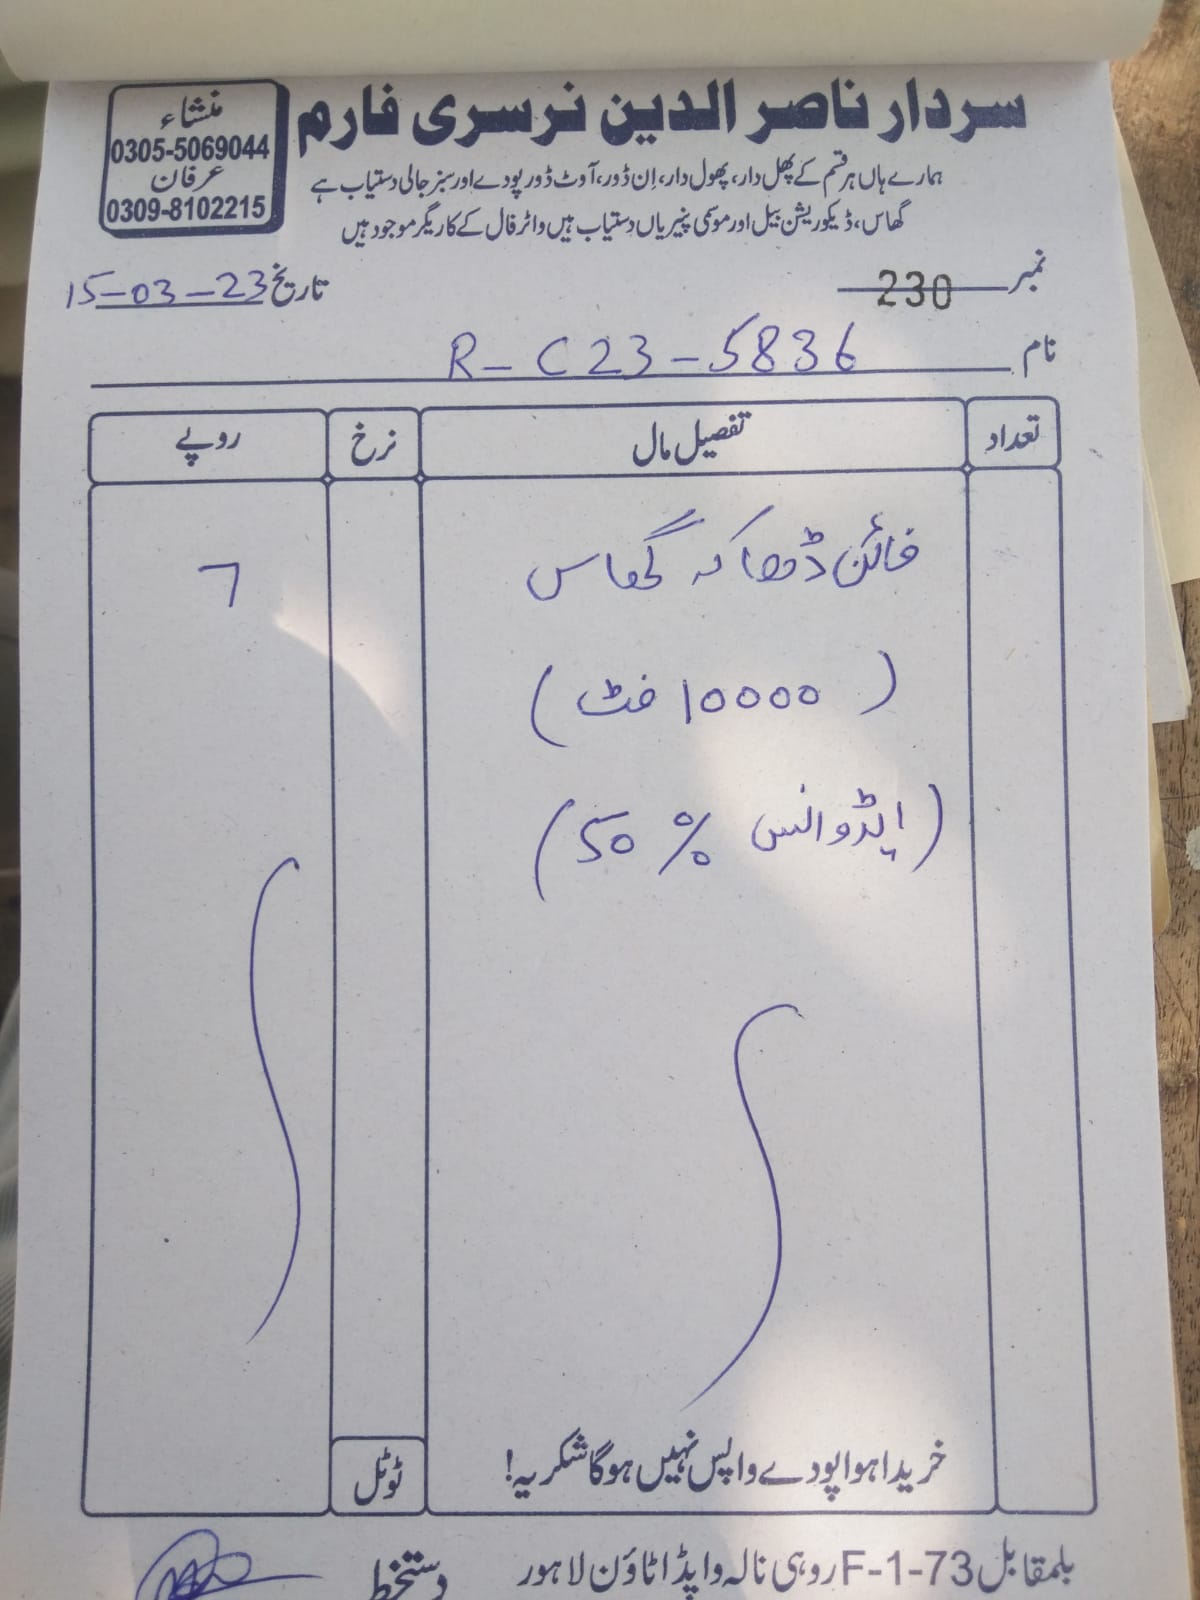 سردار ناصر الدین نرسری فارم
منشاء
0305-5069044
عرفان
0309-8102215
ہمارے ہاں ہر قسم کے پھل دار، پھول دار، اِن ڈور، آوٹ ڈور پودے اور سبز جالی دستیاب ہے
گھاس، ڈیکوریشن بیل اور موسمی پنیریاں دستیاب ہیں واٹر فال کے کاریگر موجود ہیں
نمبر 230 تاریخ 15-03-23
نام R-C23-5836
تعداد تفصیل مال نرخ روپے
فائن ڈھاکہ گھاس
(10000 فٹ)
(ایڈوانس 50%)
خریدا ہوا پودے واپس نہیں ہوگا شکریہ!
ٹوٹل
بلمقابل F-1-73 روہی نالہ واپڈا ٹاؤن لاہور دستخط